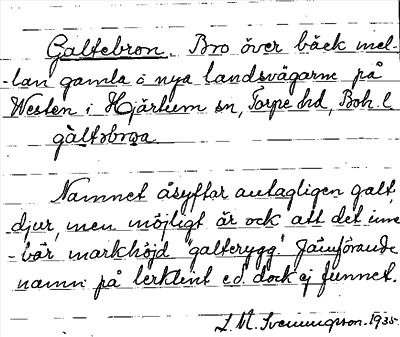 Galtebron. Bro över bäck mel-
-lan gamla o nya landsvägarne på
Westen i Hjärtum sn, Torpe hd, Boh. l
gàltəbroa
Namnet åsyftar antagligen galt,
djur, men möjligt är ock att det inne
-bär markhöjd "galterygg" Jämförande
namn på lerklint e.d. dock ej funnet.
L. M. Svenungson. 1935